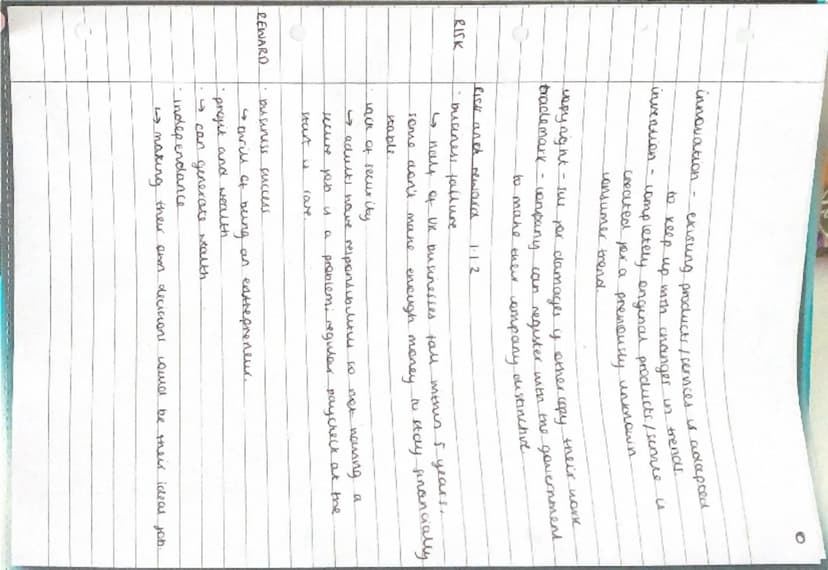 innovation - existing products/services is adapted
to keep up with changes in trends.
invention - completely original products/service is
created for a previously unknown
consumer trend.
copyright - sue for damages if other copy their work
trademark - company can register with the government
to make their company distinctive
Risk and reward 1.1.2
RISK
· business failure
↳ half of UK businesses fail within 5 years.
some don't make enough money to stay financially
stable.
· lack of security
↳ adults have responsibilities so not having a
secure job is a problem; regular paycheck at the
start is rare.
REWARD
· business success
↳ thrill of being an entrepreneur.
· profit and wealth
· ↳ can generate wealth
· independance
↳ making their own decisions could be their ideal job.